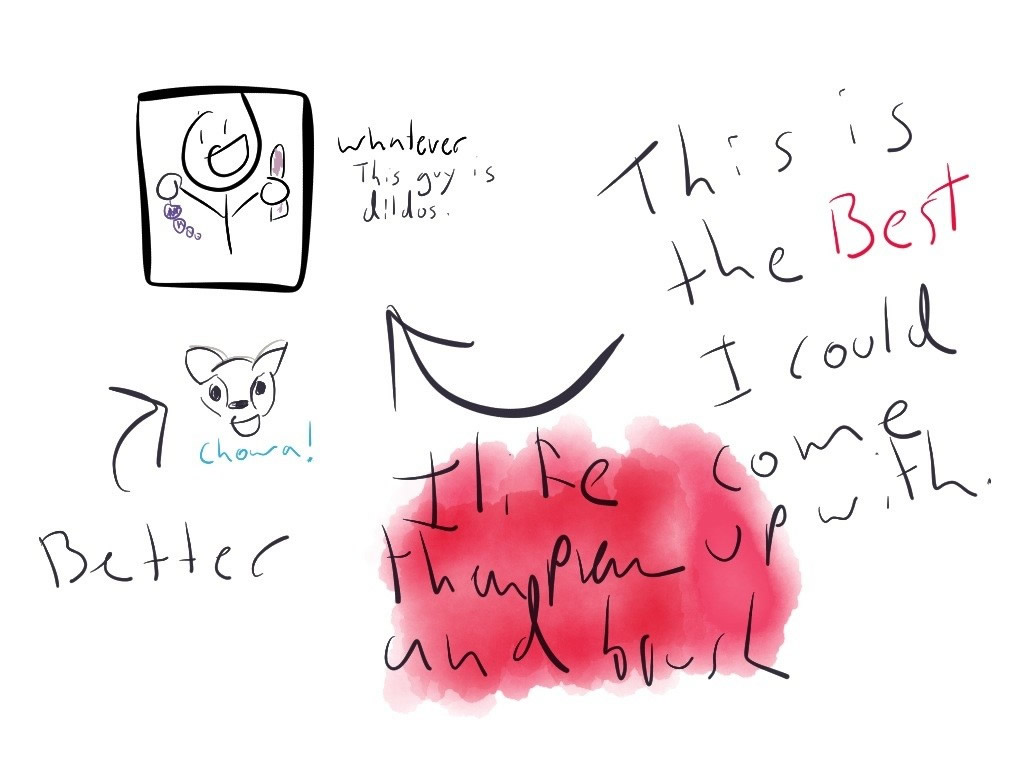 whatever
This guy is
dildos.
This is
the Best
I could
come
up with.
chowa!
Better
I like
and brush